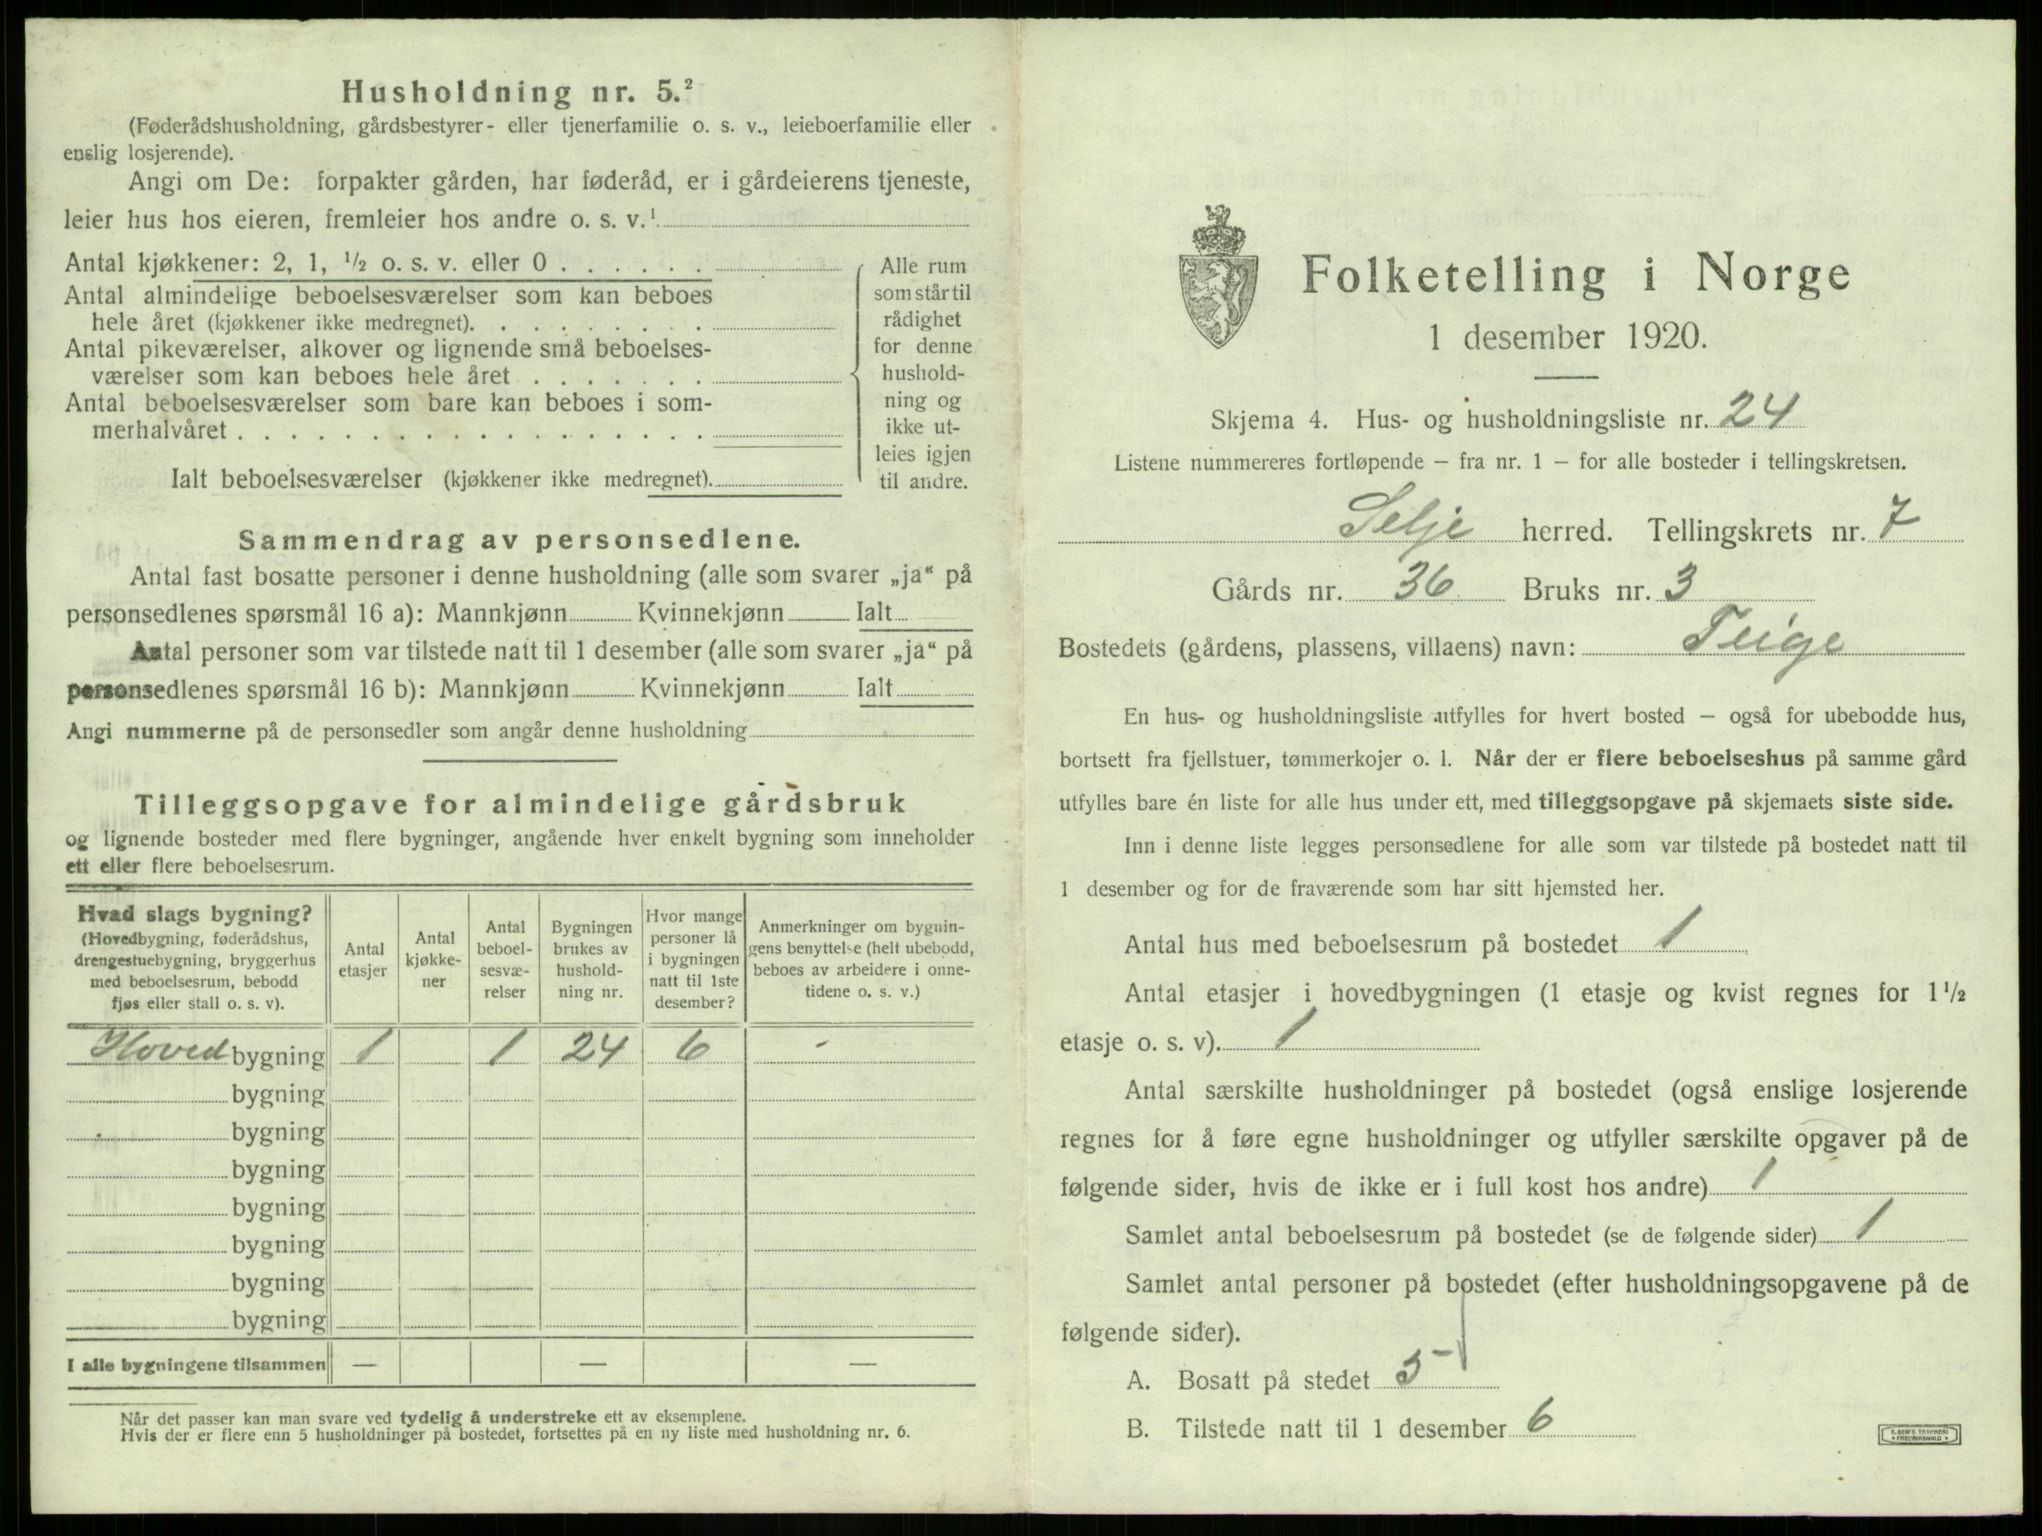 Husholdning nr. 5.²
(Føderådshusholdning, gårdsbestyrer- eller tjenerfamilie o. s. v., leieboerfamilie eller
enslig losjerende).
Angi om De: forpakter gården, har føderåd, er i gårdeierens tjeneste,
leier hus hos eieren, fremleier hos andre o. s. v.¹
Antal kjøkkener: 2, 1, ½ o. s. v. eller 0 . . . . . .
Antal almindelige beboelsesværelser som kan beboes
hele året (kjøkkener ikke medregnet). . . . . . . . .
Antal pikeværelser, alkover og lignende små beboelses-
værelser som kan beboes hele året . . . . . . .
Antal beboelsesværelser som bare kan beboes i som-
merhalvåret . . . . . . . . . . . . . . . . . .
Ialt beboelsesværelser (kjøkkener ikke medregnet).
Alle rum
som står til
rådighet
for denne
hushold-
ning og
ikke ut-
leies igjen
til andre.
Sammendrag av personsedlene.
Antal fast bosatte personer i denne husholdning (alle som svarer „ja“ på
personsedlenes spørsmål 16 a): Mannkjønn Kvinnekjønn Ialt
Antal personer som var tilstede natt til 1 desember (alle som svarer „ja“ på
personsedlenes spørsmål 16 b): Mannkjønn Kvinnekjønn Ialt
Angi nummerne på de personsedler som angår denne husholdning
Tilleggsopgave for almindelige gårdsbruk
og lignende bosteder med flere bygninger, angående hver enkelt bygning som inneholder
ett eller flere beboelsesrum.
Hvad slags bygning?
(Hovedbygning, føderådshus,
drengestuebygning, bryggerhus
med beboelsesrum, bebodd
fjøs eller stall o. s. v).
Antal
etasjer
Antal
kjøkke-
ner
Antal
beboel-
sesvæ-
relser
Bygningen
brukes av
hushold-
ning nr.
Hvor mange
personer lå
i bygningen
natt til 1ste
desember?
Anmerkninger om bygnin-
gens benyttelse (helt ubebodd,
beboes av arbeidere i onne-
tidene o. s. v.)
Hoved bygning 1 1 24 6 -
bygning
bygning
bygning
bygning
bygning
bygning
bygning
I alle bygningene tilsammen — — —
Når det passer kan man svare ved tydelig å understreke ett av eksemplene.
Hvis der er flere enn 5 husholdninger på bostedet, fortsettes på en ny liste med husholdning nr. 6.
Folketelling i Norge
1 desember 1920.
Skjema 4. Hus- og husholdningsliste nr. 24
Listene nummereres fortløpende – fra nr. 1 – for alle bosteder i tellingskretsen.
Selje herred. Tellingskrets nr. 7
Gårds nr. 36 Bruks nr. 3
Bostedets (gårdens, plassens, villaens) navn: Teige
En hus- og husholdningsliste utfylles for hvert bosted – også for ubebodde hus,
bortsett fra fjellstuer, tømmerkojer o. l. Når der er flere beboelseshus på samme gård
utfylles bare én liste for alle hus under ett, med tilleggsopgave på skjemaets siste side.
Inn i denne liste legges personsedlene for alle som var tilstede på bostedet natt til
1 desember og for de fraværende som har sitt hjemsted her.
Antal hus med beboelsesrum på bostedet 1
Antal etasjer i hovedbygningen (1 etasje og kvist regnes for 1½
etasje o. s. v). 1
Antal særskilte husholdninger på bostedet (også enslige losjerende
regnes for å føre egne husholdninger og utfyller særskilte opgaver på de
følgende sider, hvis de ikke er i full kost hos andre) 1
Samlet antal beboelsesrum på bostedet (se de følgende sider) 1
Samlet antal personer på bostedet (efter husholdningsopgavene på de
følgende sider).
A. Bosatt på stedet 5
B. Tilstede natt til 1 desember 6
E. SEM'S TRYKKERI
• FREDRIKSHALD •